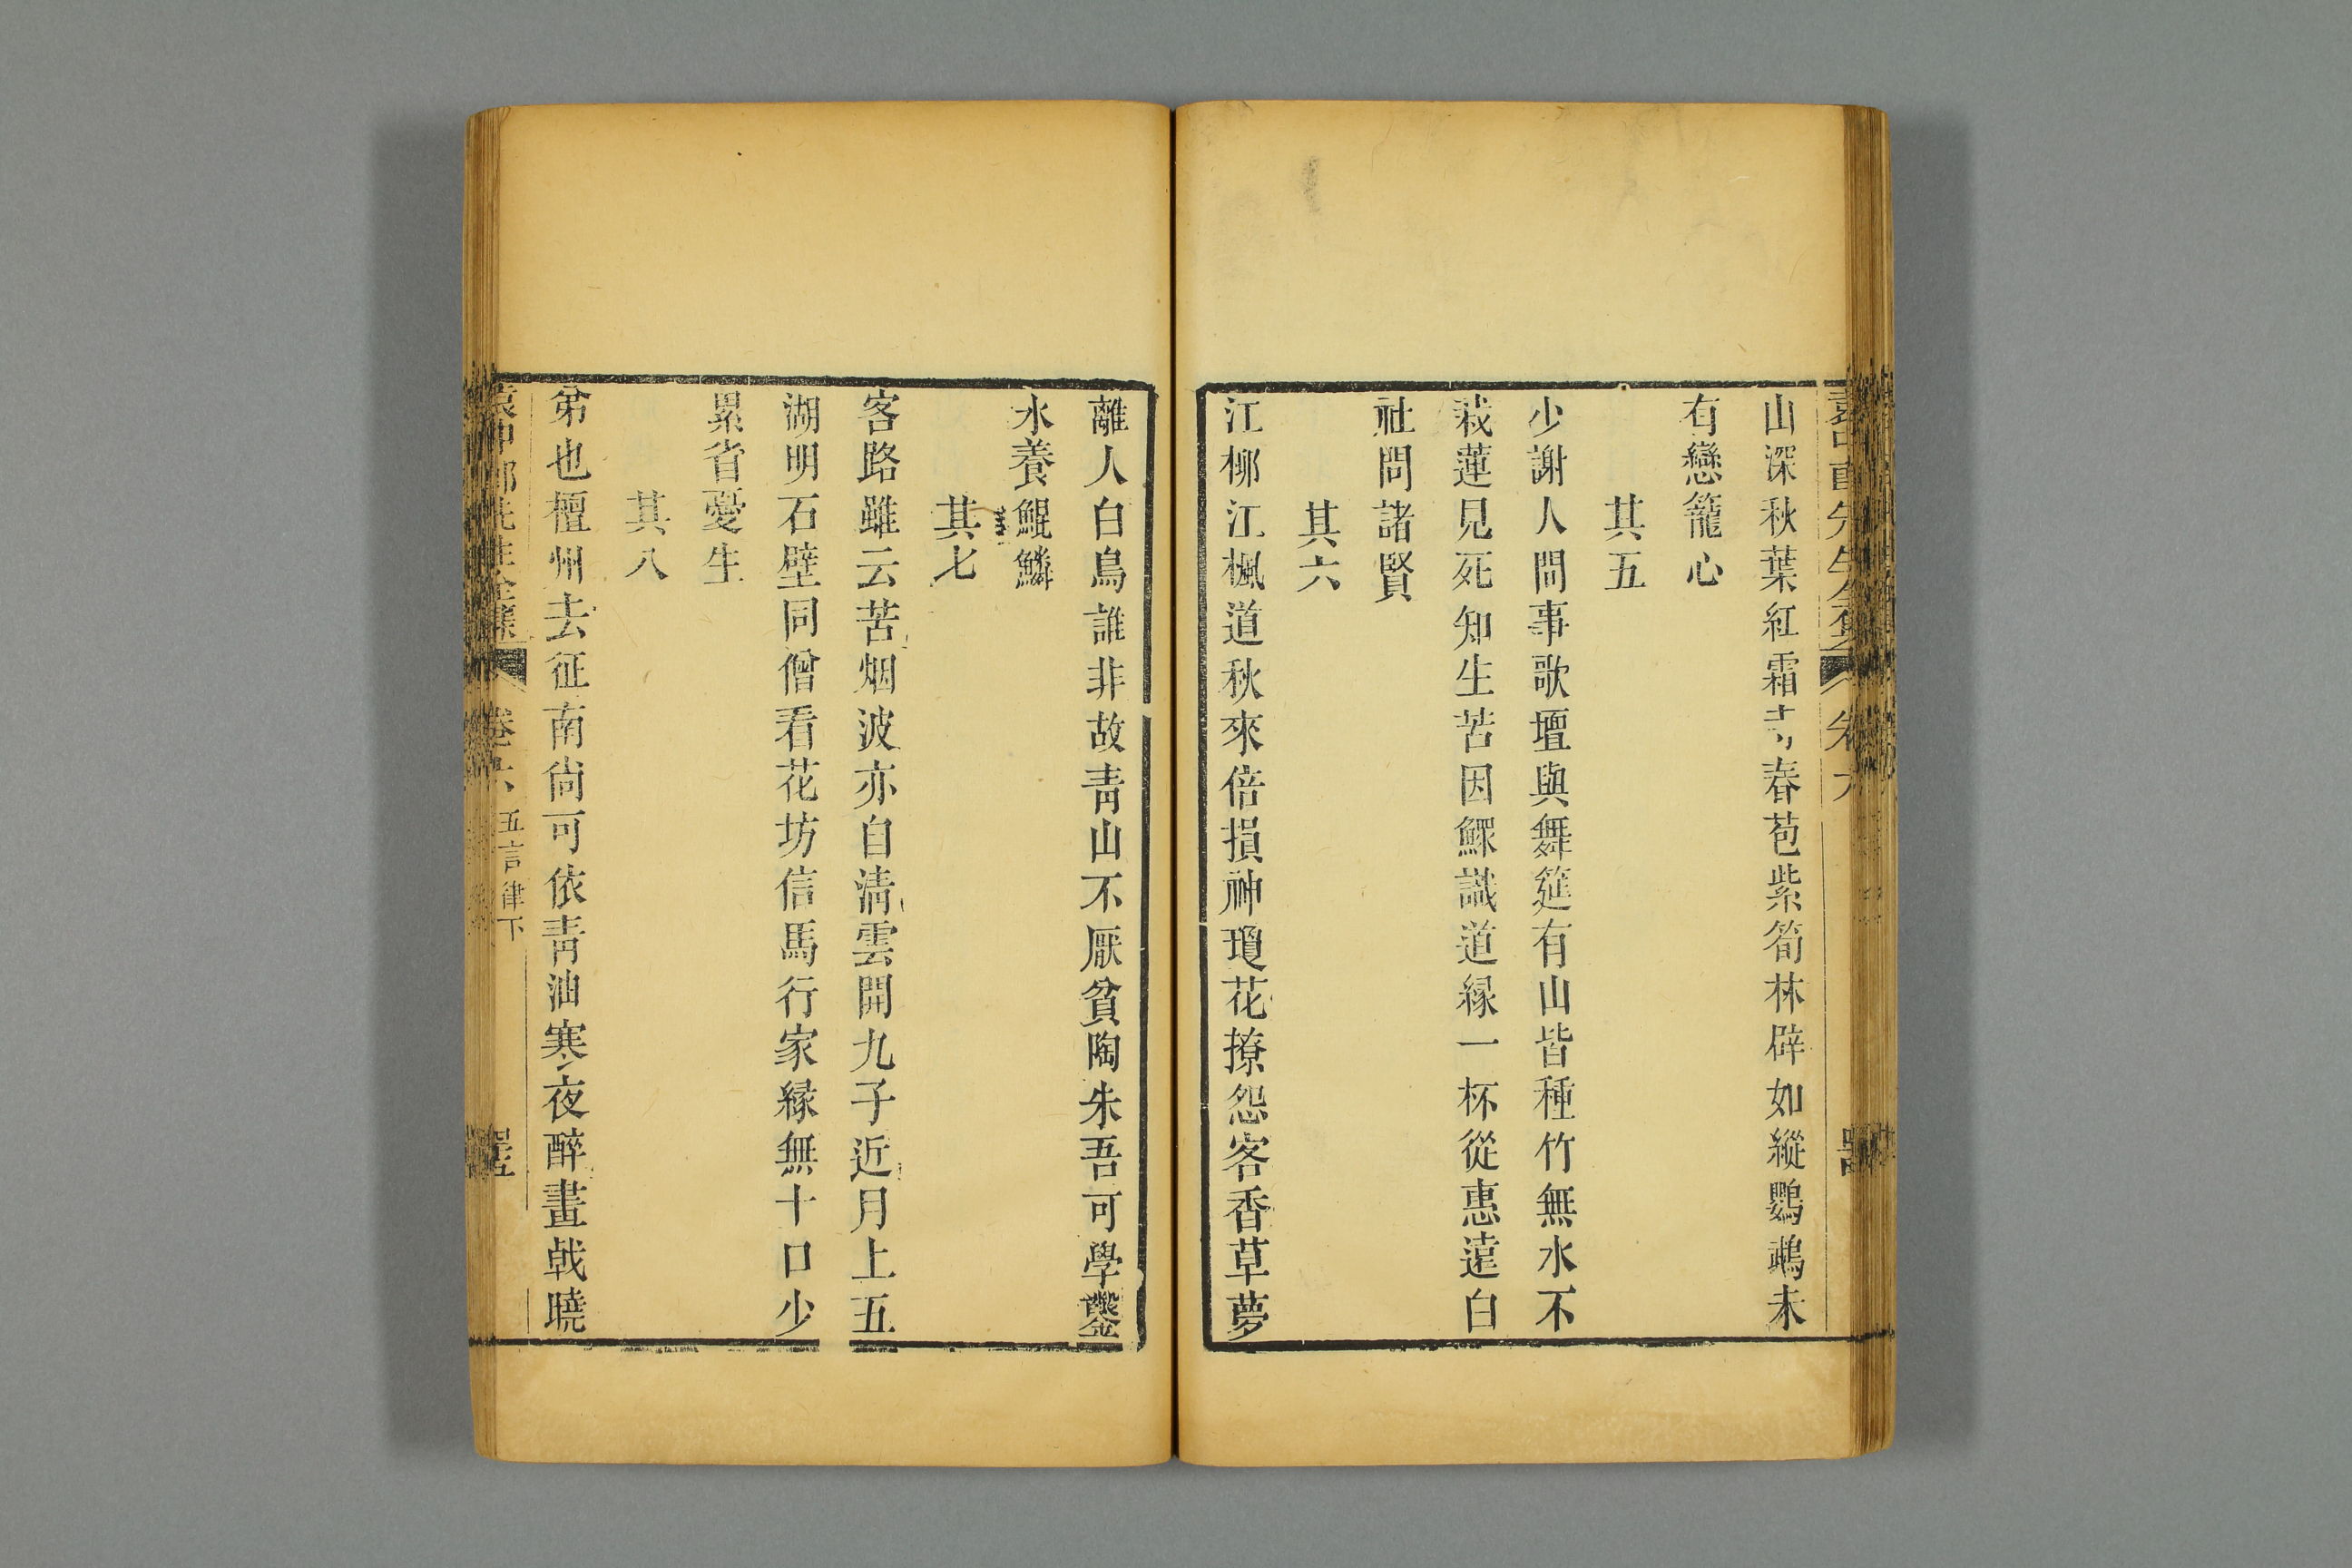 山深秋葉紅霜 春苞紫筍林辟如縱鸚鵡未
有戀籠心
其五
少謝人間事歌壇與舞筵有山皆種竹無水不
栽蓮見死知生苦因鰥識道緣一杯從惠遠白
社問諸賢
其六
江柳江楓道秋來倍損神瓊花撩怨客香草夢
離人白鳥誰非故青山不厭貧陶朱吾可學鑿
水養鯤鱗
其七
客路雖云苦烟波亦自清雲開九子近月上五
湖明石壁同僧看花坊信馬行家緣無十口少
累省憂生
其八
弟也檀州去征南尚可依青油寒夜醉畫戟曉
袁中郎先生全集 卷六 五言律下